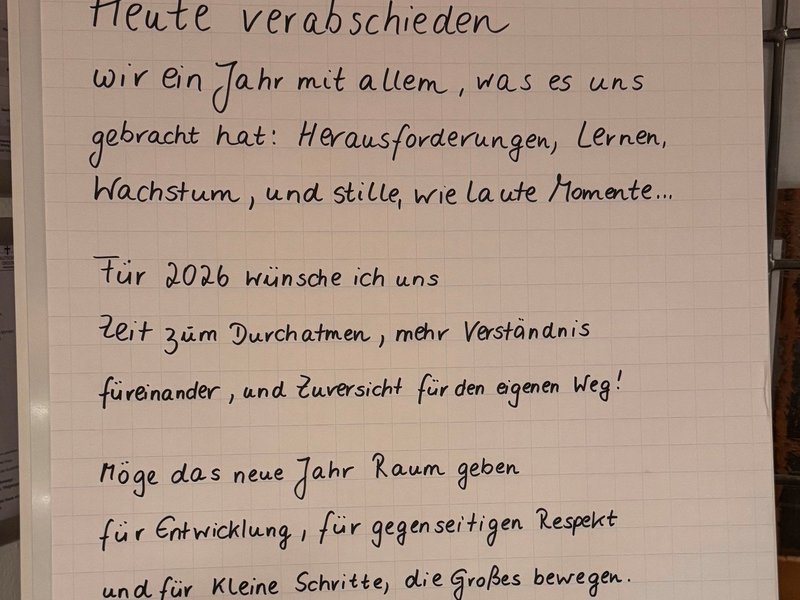 Heute verabschieden
wir ein Jahr mit allem, was es uns
gebracht hat: Herausforderungen, Lernen,
Wachstum, und stille, wie laute Momente...
Für 2026 wünsche ich uns
Zeit zum Durchatmen, mehr Verständnis
füreinander, und Zuversicht für den eigenen Weg!
Möge das neue Jahr Raum geben
für Entwicklung, für gegenseitigen Respekt
und für kleine Schritte, die Großes bewegen.